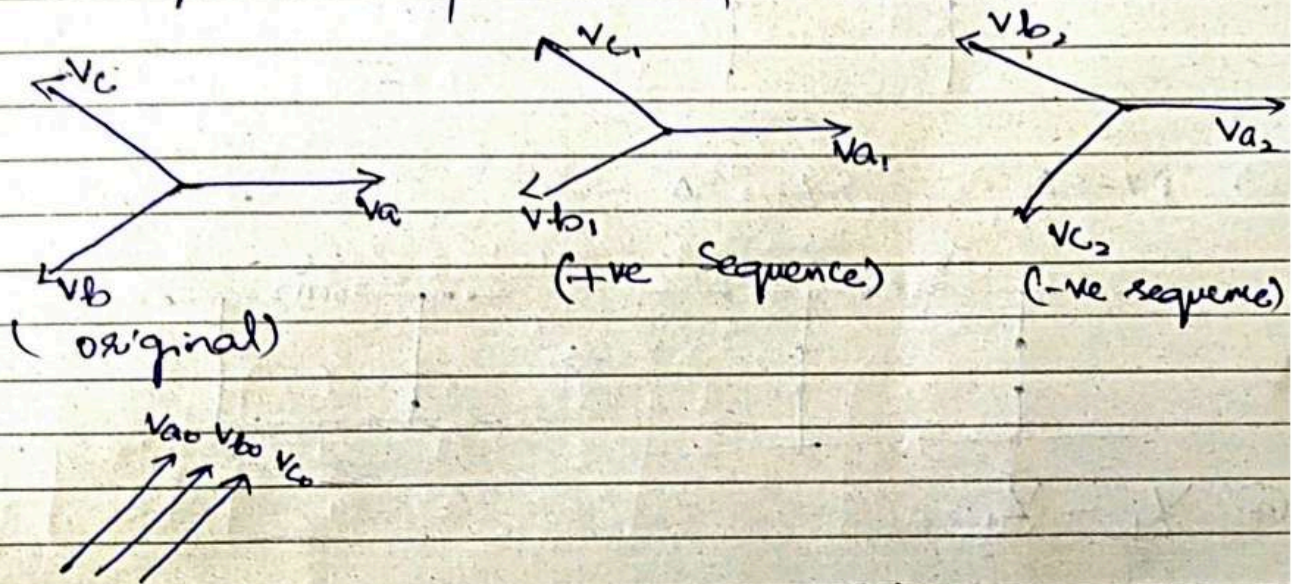 Vc
Va
Vb
(original)
Vc₁
Va₁
Vb₁
(+ve Sequence)
Vb₂
Va₂
Vc₂
(-ve sequence)
Va₀ Vb₀ Vc₀